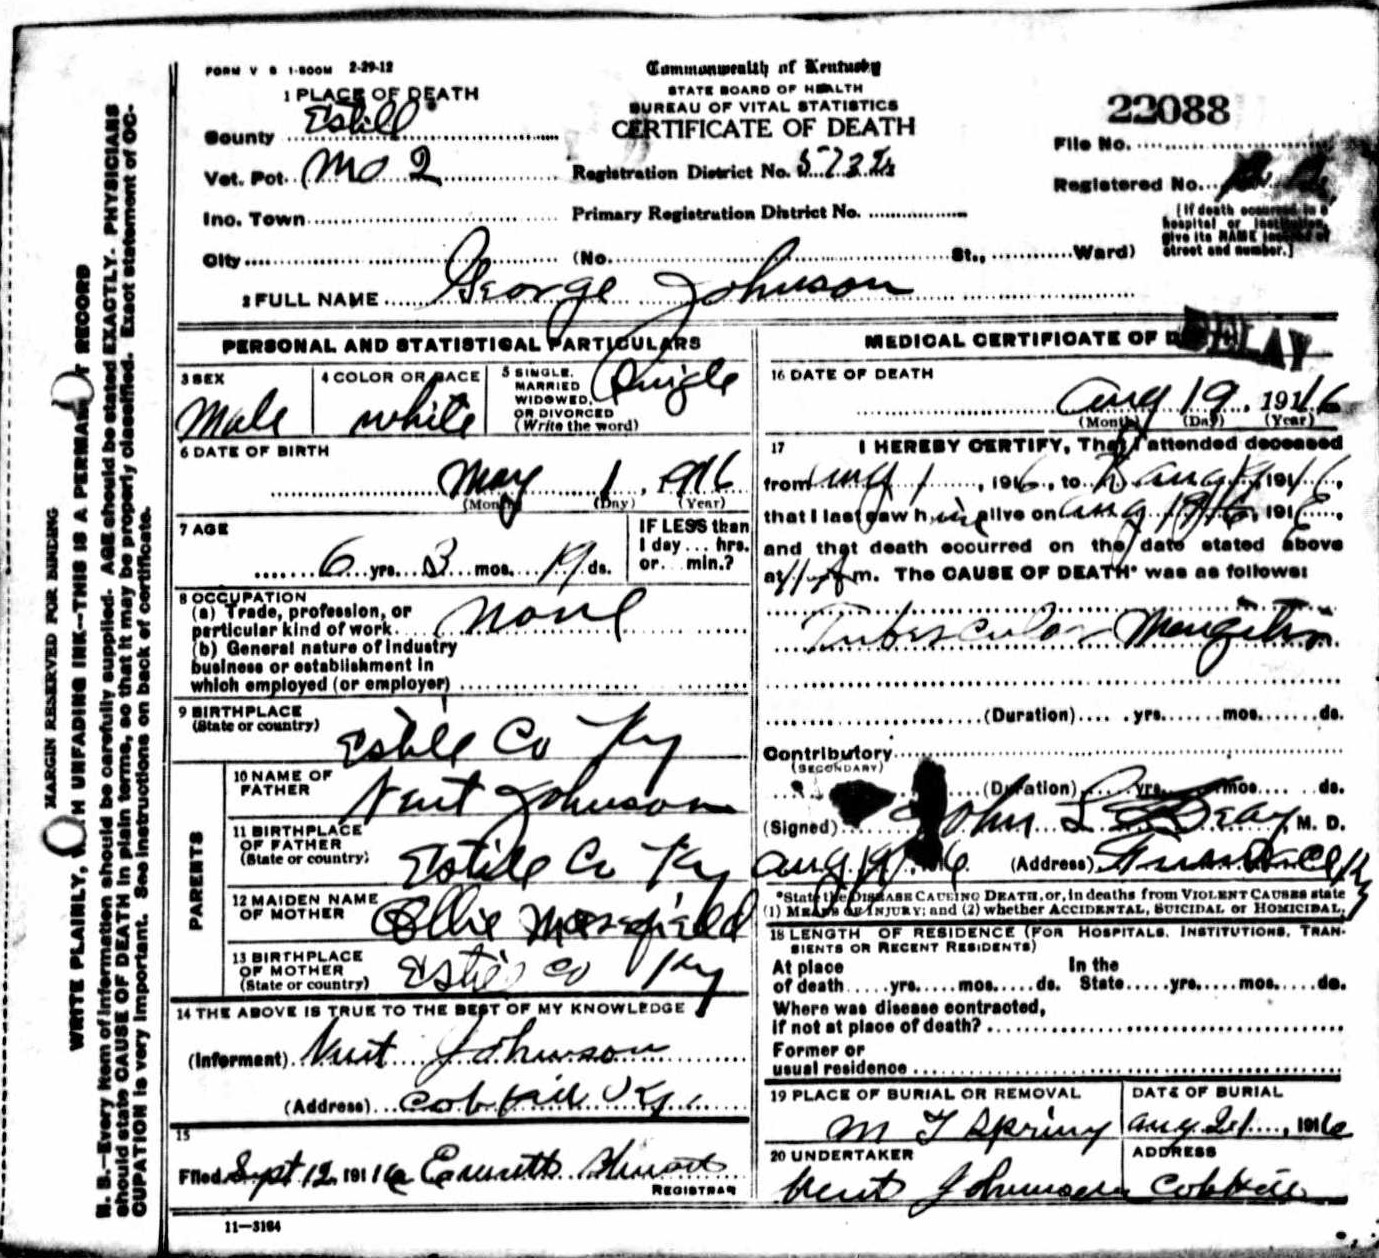 FORM V S 1-500M 2-29-12
Commonwealth of Kentucky
STATE BOARD OF HEALTH
BUREAU OF VITAL STATISTICS
CERTIFICATE OF DEATH
22088
File No.
Registered No.
[If death occurred in a
hospital or institution,
give its NAME instead of
street and number.]
1 PLACE OF DEATH
County Estill
Vot. Pot. Mo 2
Registration District No.
Inc. Town
Primary Registration District No.
City
(No. St., Ward)
2 FULL NAME George Johnson
PERSONAL AND STATISTICAL PARTICULARS
3 SEX
Male
4 COLOR OR RACE
white
5 SINGLE,
MARRIED
WIDOWED,
OR DIVORCED
(Write the word)
Single
6 DATE OF BIRTH
May 1, 1916
(Month) (Day) (Year)
7 AGE
6 yrs. 3 mos. 19 ds.
IF LESS than
1 day ... hrs.
or ... min.?
8 OCCUPATION
(a) Trade, profession, or
particular kind of work None
(b) General nature of industry
business or establishment in
which employed (or employer)
9 BIRTHPLACE
(State or country)
Estile Co Ky
PARENTS
10 NAME OF
FATHER
Johnson
11 BIRTHPLACE
OF FATHER
(State or country)
Estile Co Ky
12 MAIDEN NAME
OF MOTHER
Ollie
13 BIRTHPLACE
OF MOTHER
(State or country)
Estil co Ky
14 THE ABOVE IS TRUE TO THE BEST OF MY KNOWLEDGE
(Informant) Johnson
(Address) Ky.
15
Filed Sept 12, 1916
REGISTRAR
11—3184
MEDICAL CERTIFICATE OF DEATH
DELAY
16 DATE OF DEATH
Aug 19, 1916
(Month) (Day) (Year)
17 I HEREBY CERTIFY, That I attended deceased
from 1, 1916, to Aug 19 1916,
that I last saw him alive on Aug 19 16, 1916,
and that death occurred on the date stated above
at 11 A m. The CAUSE OF DEATH* was as follows:
Tubercular Mengitis
(Duration) yrs. mos. ds.
Contributory
(SECONDARY)
(Duration) yrs. mos. ds.
(Signed) John L M. D.
Aug 19, 1916 (Address)
*State the DISEASE CAUSING DEATH, or, in deaths from VIOLENT CAUSES state
(1) MEANS OF INJURY; and (2) whether ACCIDENTAL, SUICIDAL or HOMICIDAL.
18 LENGTH OF RESIDENCE (FOR HOSPITALS, INSTITUTIONS, TRAN-
SIENTS OR RECENT RESIDENTS)
At place
of death yrs. mos. ds.
In the
State yrs. mos. ds.
Where was disease contracted,
if not at place of death?
Former or
usual residence
19 PLACE OF BURIAL OR REMOVAL
Spring
DATE OF BURIAL
Aug 21, 1916
20 UNDERTAKER
Johnson
ADDRESS
MARGIN RESERVED FOR BINDING
WRITE PLAINLY, WITH UNFADING INK—THIS IS A PERMANENT RECORD
N. B.—Every item of information should be carefully supplied. AGE should be stated EXACTLY. PHYSICIANS
should state CAUSE OF DEATH in plain terms, so that it may be properly classified. Exact statement of OC-
CUPATION is very important. See instructions on back of certificate.